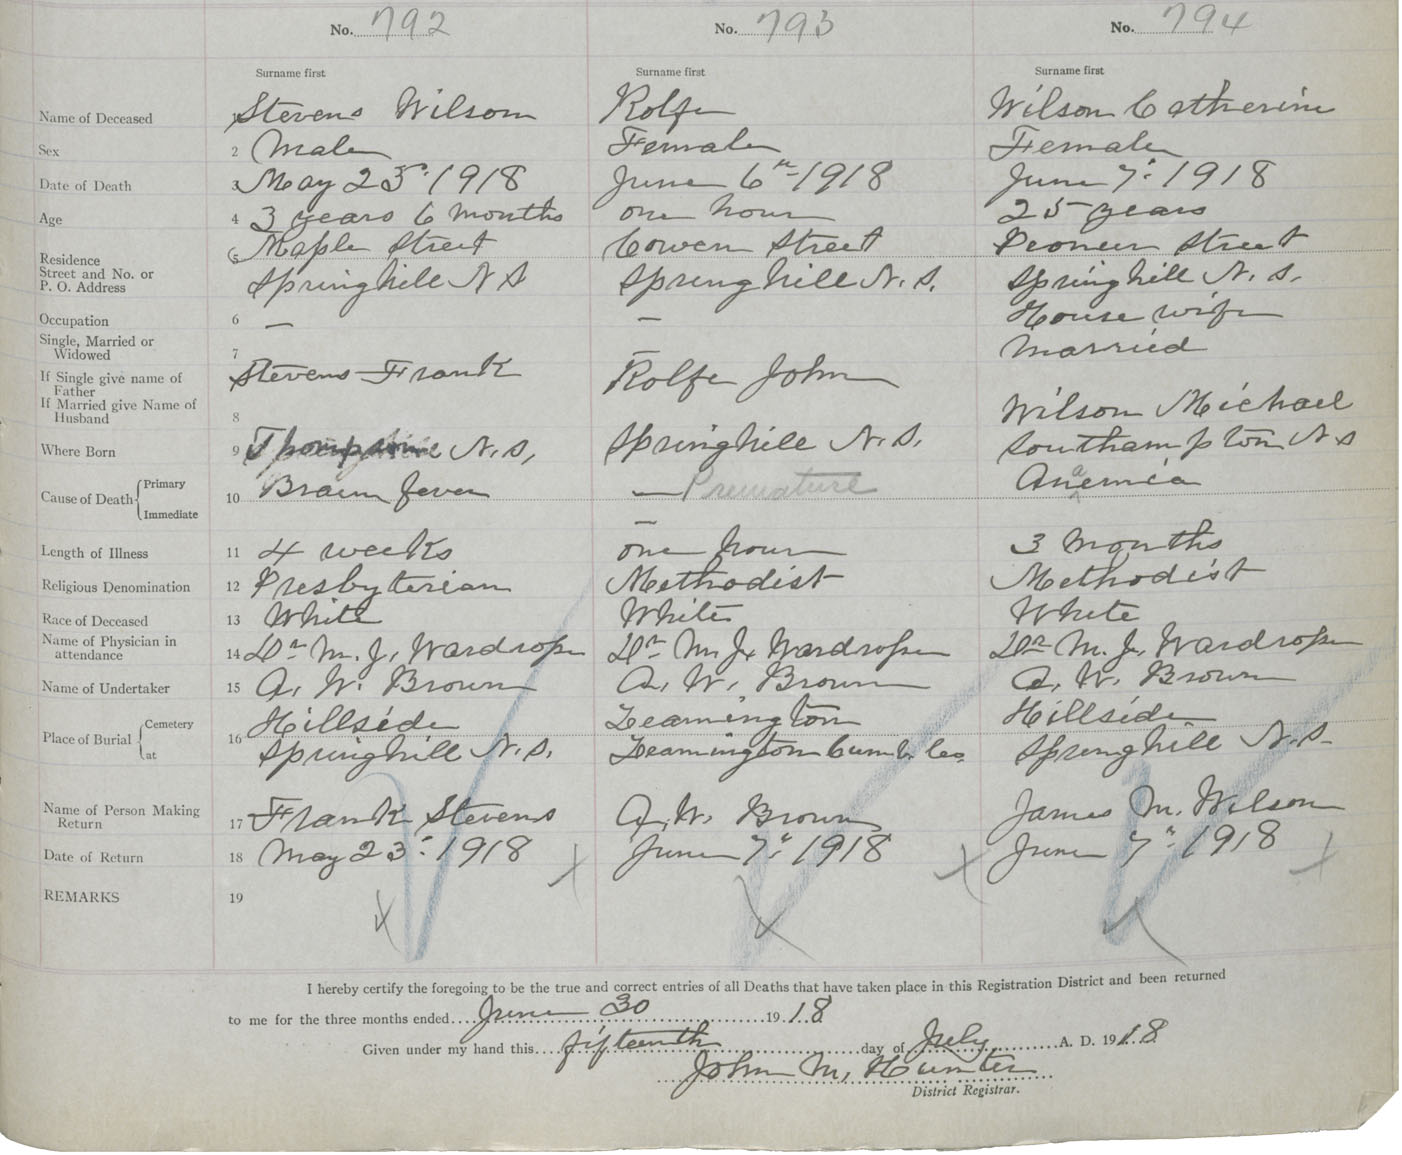 No. 792 No. 793 No. 794
Surname first Surname first Surname first
Name of Deceased 1 Stevens Wilson Rolfe Wilson Catherine
Sex 2 Male Female Female
Date of Death 3 May 23" 1918 June 6th 1918 June 7" 1918
Age 4 3 years 6 months one hour 25 years
Residence 5 Maple Street Cowen Street Pioneer Street
Street and No. or
P. O. Address Springhill N S Springhill N. S. Springhill N. S.
Occupation 6 — — House wife
Single, Married or
Widowed 7 — Married
If Single give name of
Father Stevens Frank Rolfe John
If Married give Name of
Husband 8 Wilson Michael
Where Born 9 N. S, Springhill N. S. Southampton N S
Cause of Death { Primary 10 Brain fever — Premature Anaemia
Immediate —
Length of Illness 11 4 weeks one hour 3 months
Religious Denomination 12 Presbyterian Methodist Methodist
Race of Deceased 13 White White White
Name of Physician in
attendance 14 Dr M. J. Wardrope Dr M. J. Wardrope Dr M. J. Wardrope
Name of Undertaker 15 A. W. Brown A. W. Brown A. W. Brown
Place of Burial { Cemetery 16 Hillside Leamington Hillside
at Springhill N. S. Leamington Cumb. Co. Springhill N. S.
Name of Person Making
Return 17 Frank Stevens A. W. Brown James M. Wilson
Date of Return 18 May 23" 1918 June 7" 1918 June 7" 1918
REMARKS 19
I hereby certify the foregoing to be the true and correct entries of all Deaths that have taken place in this Registration District and been returned
to me for the three months ended June 30 1918
Given under my hand this fifteenth day of July A. D. 1918
John M. Hunter
District Registrar.